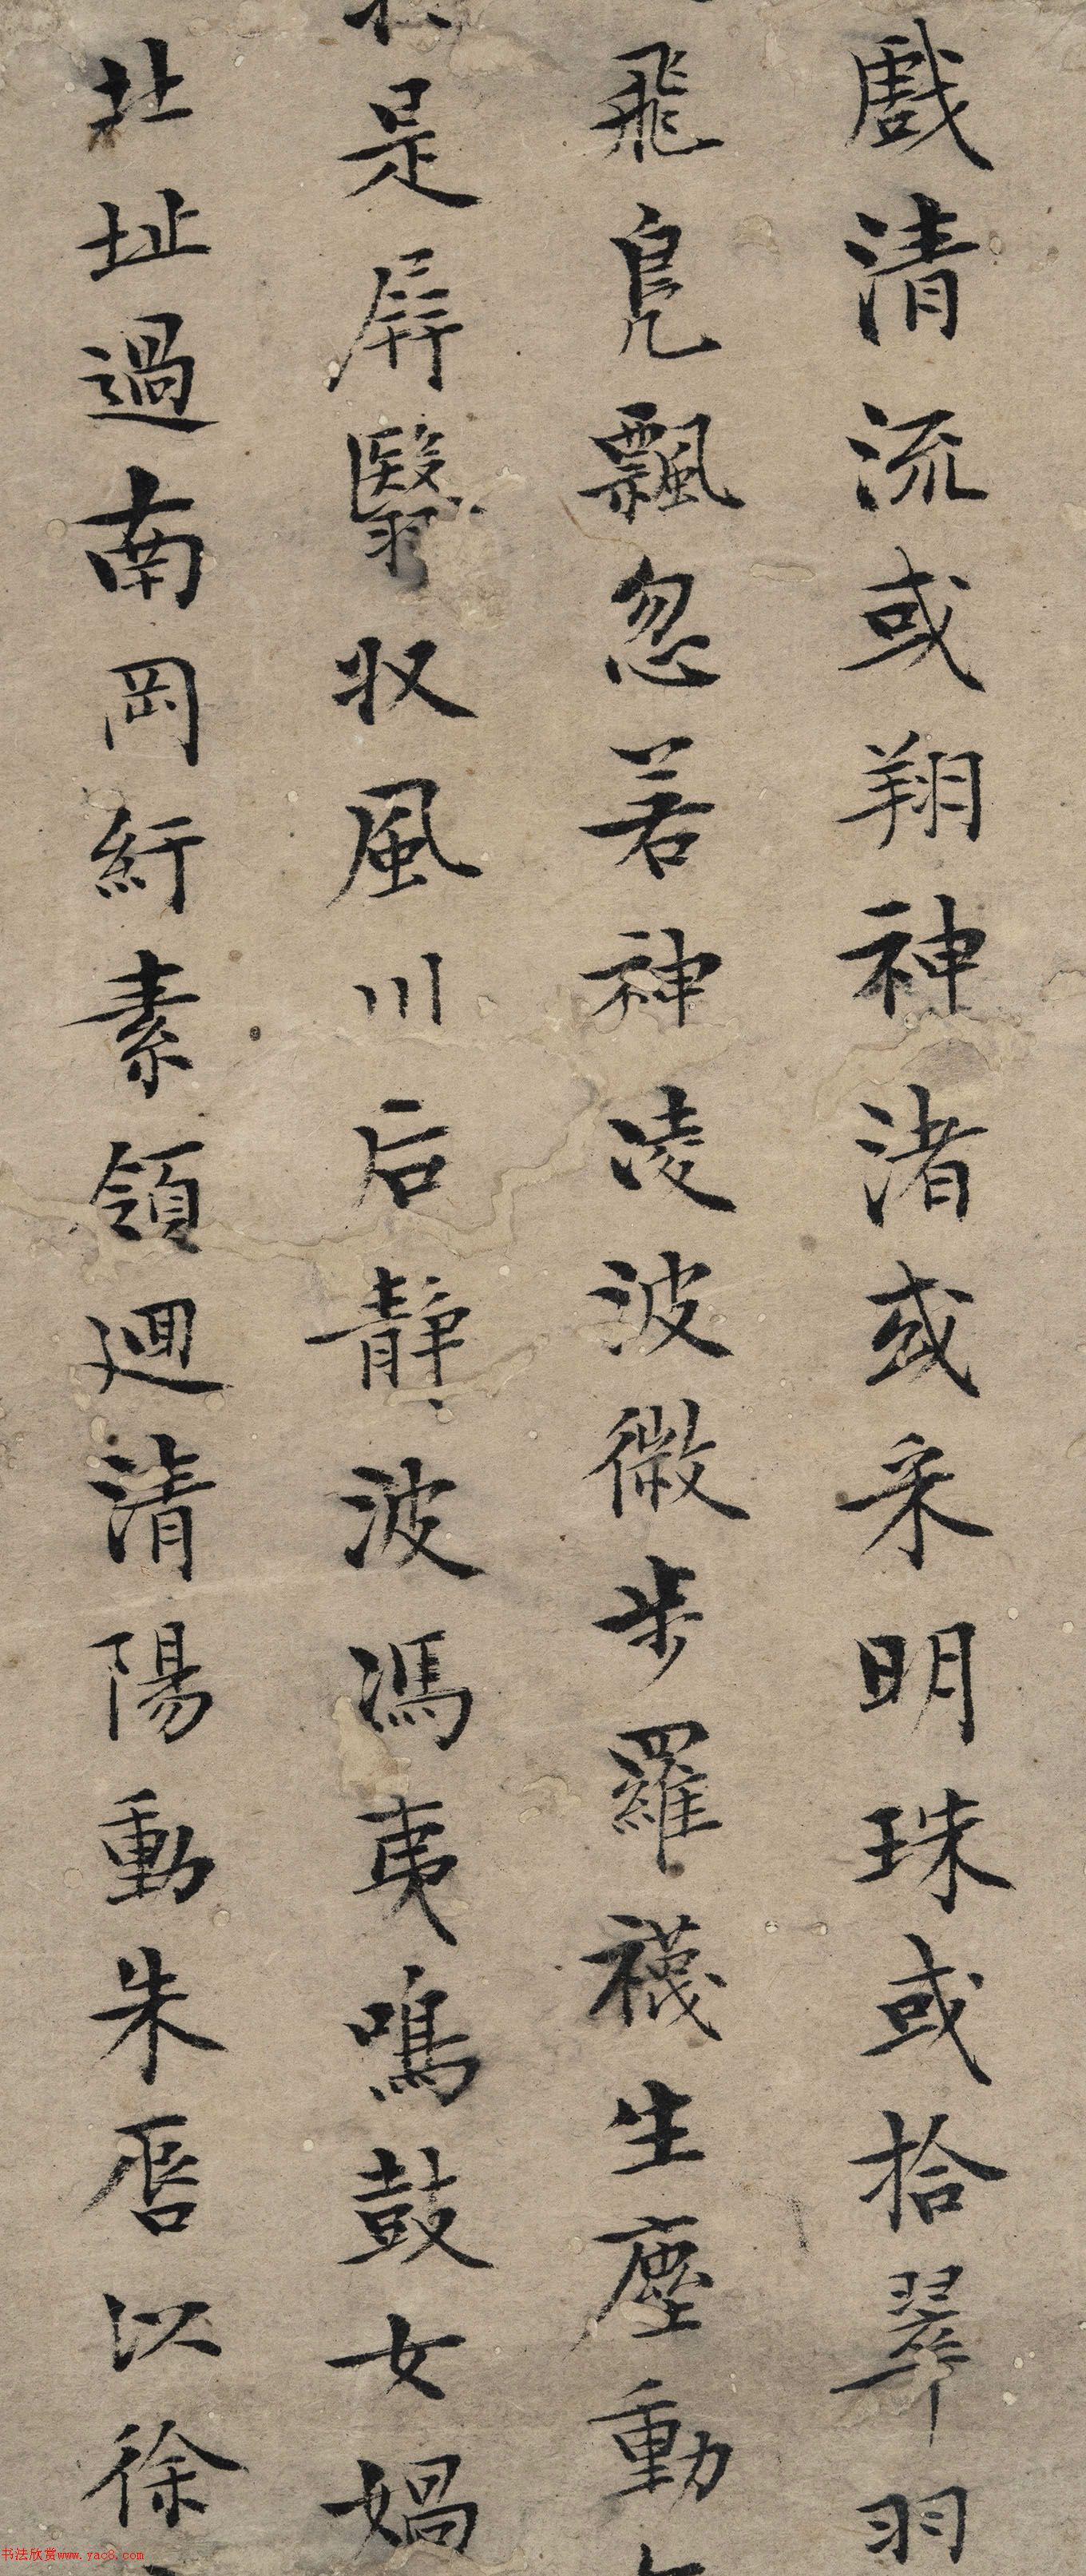 戲清流或翔神渚或采明珠或拾翠羽
飛鳧飄忽若神凌波微步羅襪生塵動
是屏翳收風川后靜波馮夷鳴鼓女媧
北沚過南岡紆素領迴清陽動朱脣以徐
书法欣赏www.yac8.com